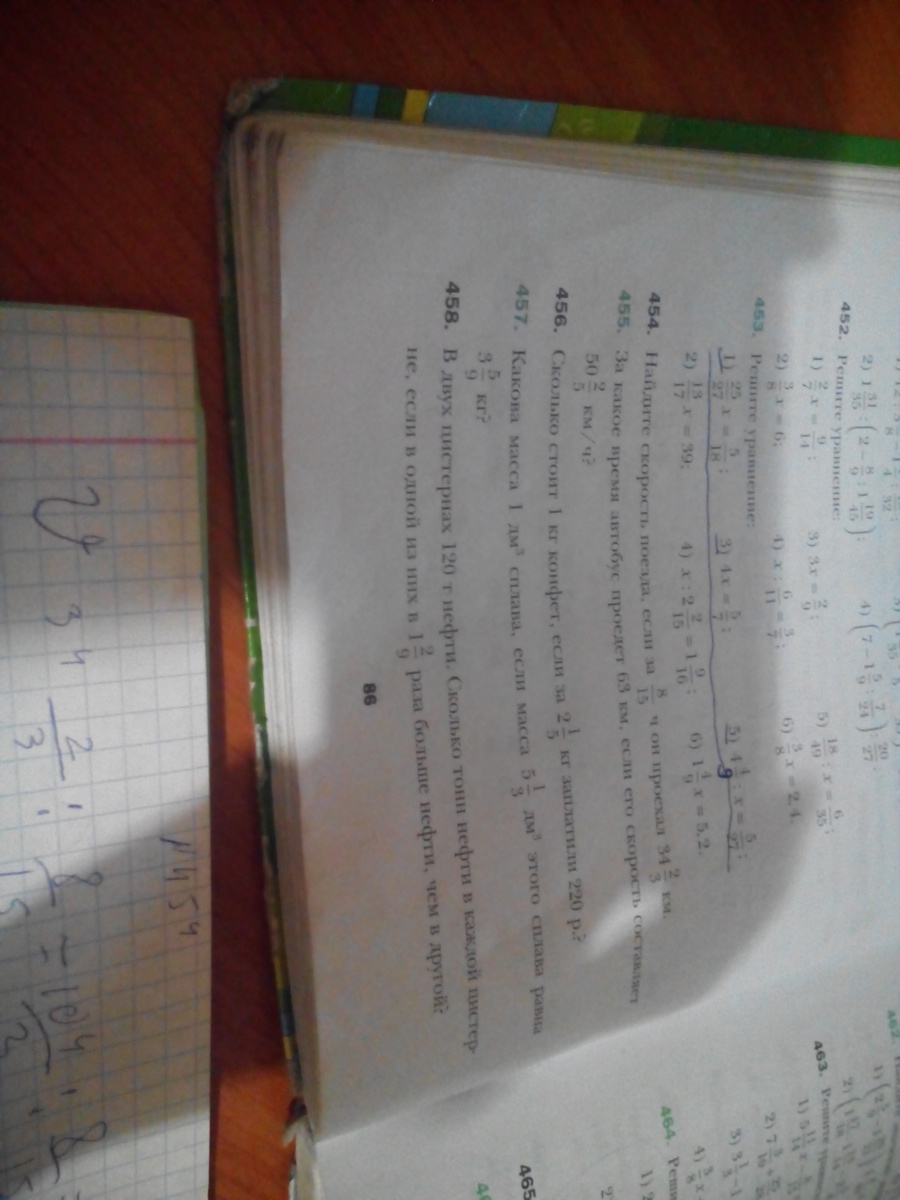 2) 1 31/35 : (2 − 8/9 : 1 19/45);
4) (7 − 1 5/9 : 7/24) : 20/27.
452. Решите уравнение:
1) 2/7 x = 9/14;
3) 3x = 2/9;
5) 18/49 : x = 6/35;
2) 3/8 x = 6;
4) x : 6/11 = 3/7;
6) 3/8 x = 2,4.
453. Решите уравнение:
1) 25/27 x = 5/18;
3) 4x = 5/7;
5) 4 4/9 : x = 5/27;
2) 13/17 x = 39;
4) x : 2 2/15 = 1 9/16;
6) 1 4/9 x = 5,2.
454. Найдите скорость поезда, если за 8/15 ч он проехал 34 2/3 км.
455. За какое время автобус проедет 63 км, если его скорость составляет
50 2/5 км/ч?
456. Сколько стоит 1 кг конфет, если за 2 1/5 кг заплатили 220 р.?
457. Какова масса 1 дм³ сплава, если масса 5 1/3 дм³ этого сплава равна
3 5/9 кг?
458. В двух цистернах 120 т нефти. Сколько тонн нефти в каждой цистер-
не, если в одной из них в 1 2/9 раза больше нефти, чем в другой?
86
463.
464.
465
N454
34 2/3 : 8/15 = 104/3 : 8/15